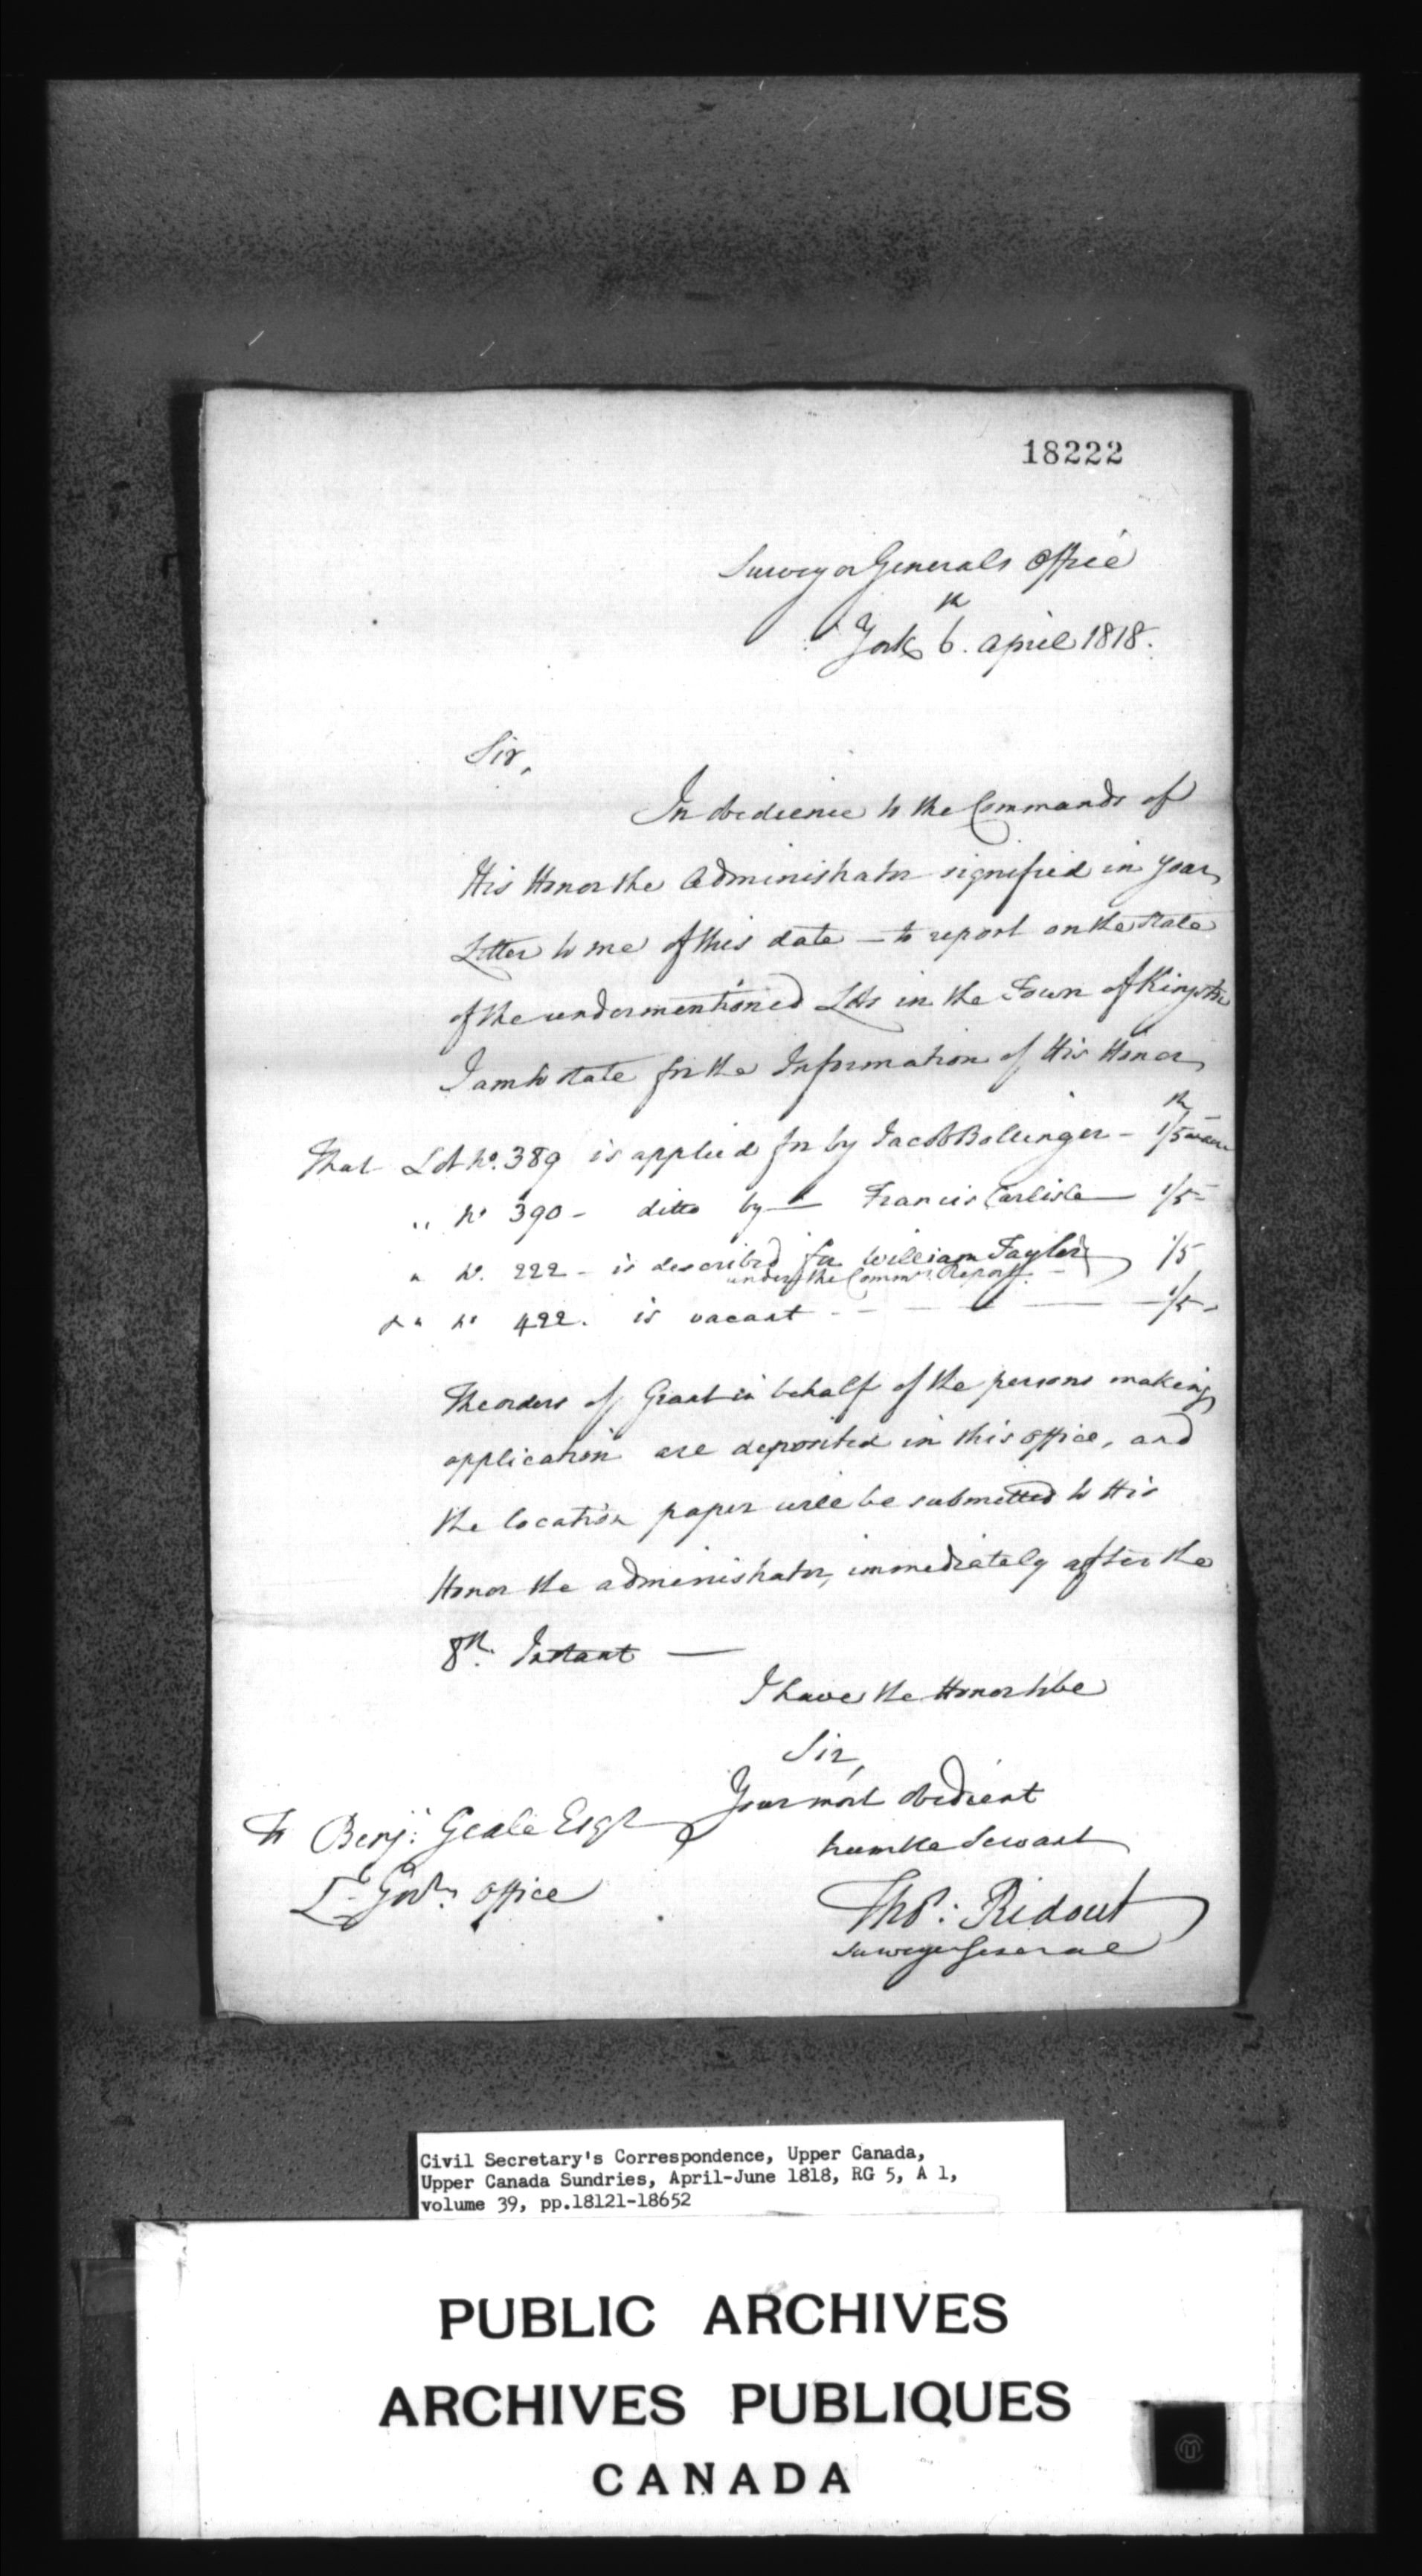 18222
Surveyor Generals Office
York 6th. April 1818.
Sir,
In obedience to the Commands of
His Honor the Administrator signified in your
Letter to me of this date — to report on the state
of the undermentioned Lots in the Town of Kingston
I am to state for the Information of His Honor
That Lot No. 389 is applied for by Jacob Ballinger - 1/5th
" No 390 - ditto by — Francis Carlisle — 1/5 -
" No. 222 - is described for William Taylor 1/5
under the Commrs. Report. -
& " No 422. is vacant - - — — 1/5 -
The orders of Grant in behalf of the persons making
application are deposited in this office, and
the location paper will be submitted to His
Honor the administrator, immediately after the
8th. Instant —
I have the Honor to be
Sir,
Your most obedient
humble Servant
Thos: Ridout
Surveyor General
To Benj: Geale Esqr
Lt Govrs. Office
Civil Secretary's Correspondence, Upper Canada,
Upper Canada Sundries, April-June 1818, RG 5, A 1,
volume 39, pp.18121-18652
PUBLIC ARCHIVES
ARCHIVES PUBLIQUES
CANADA